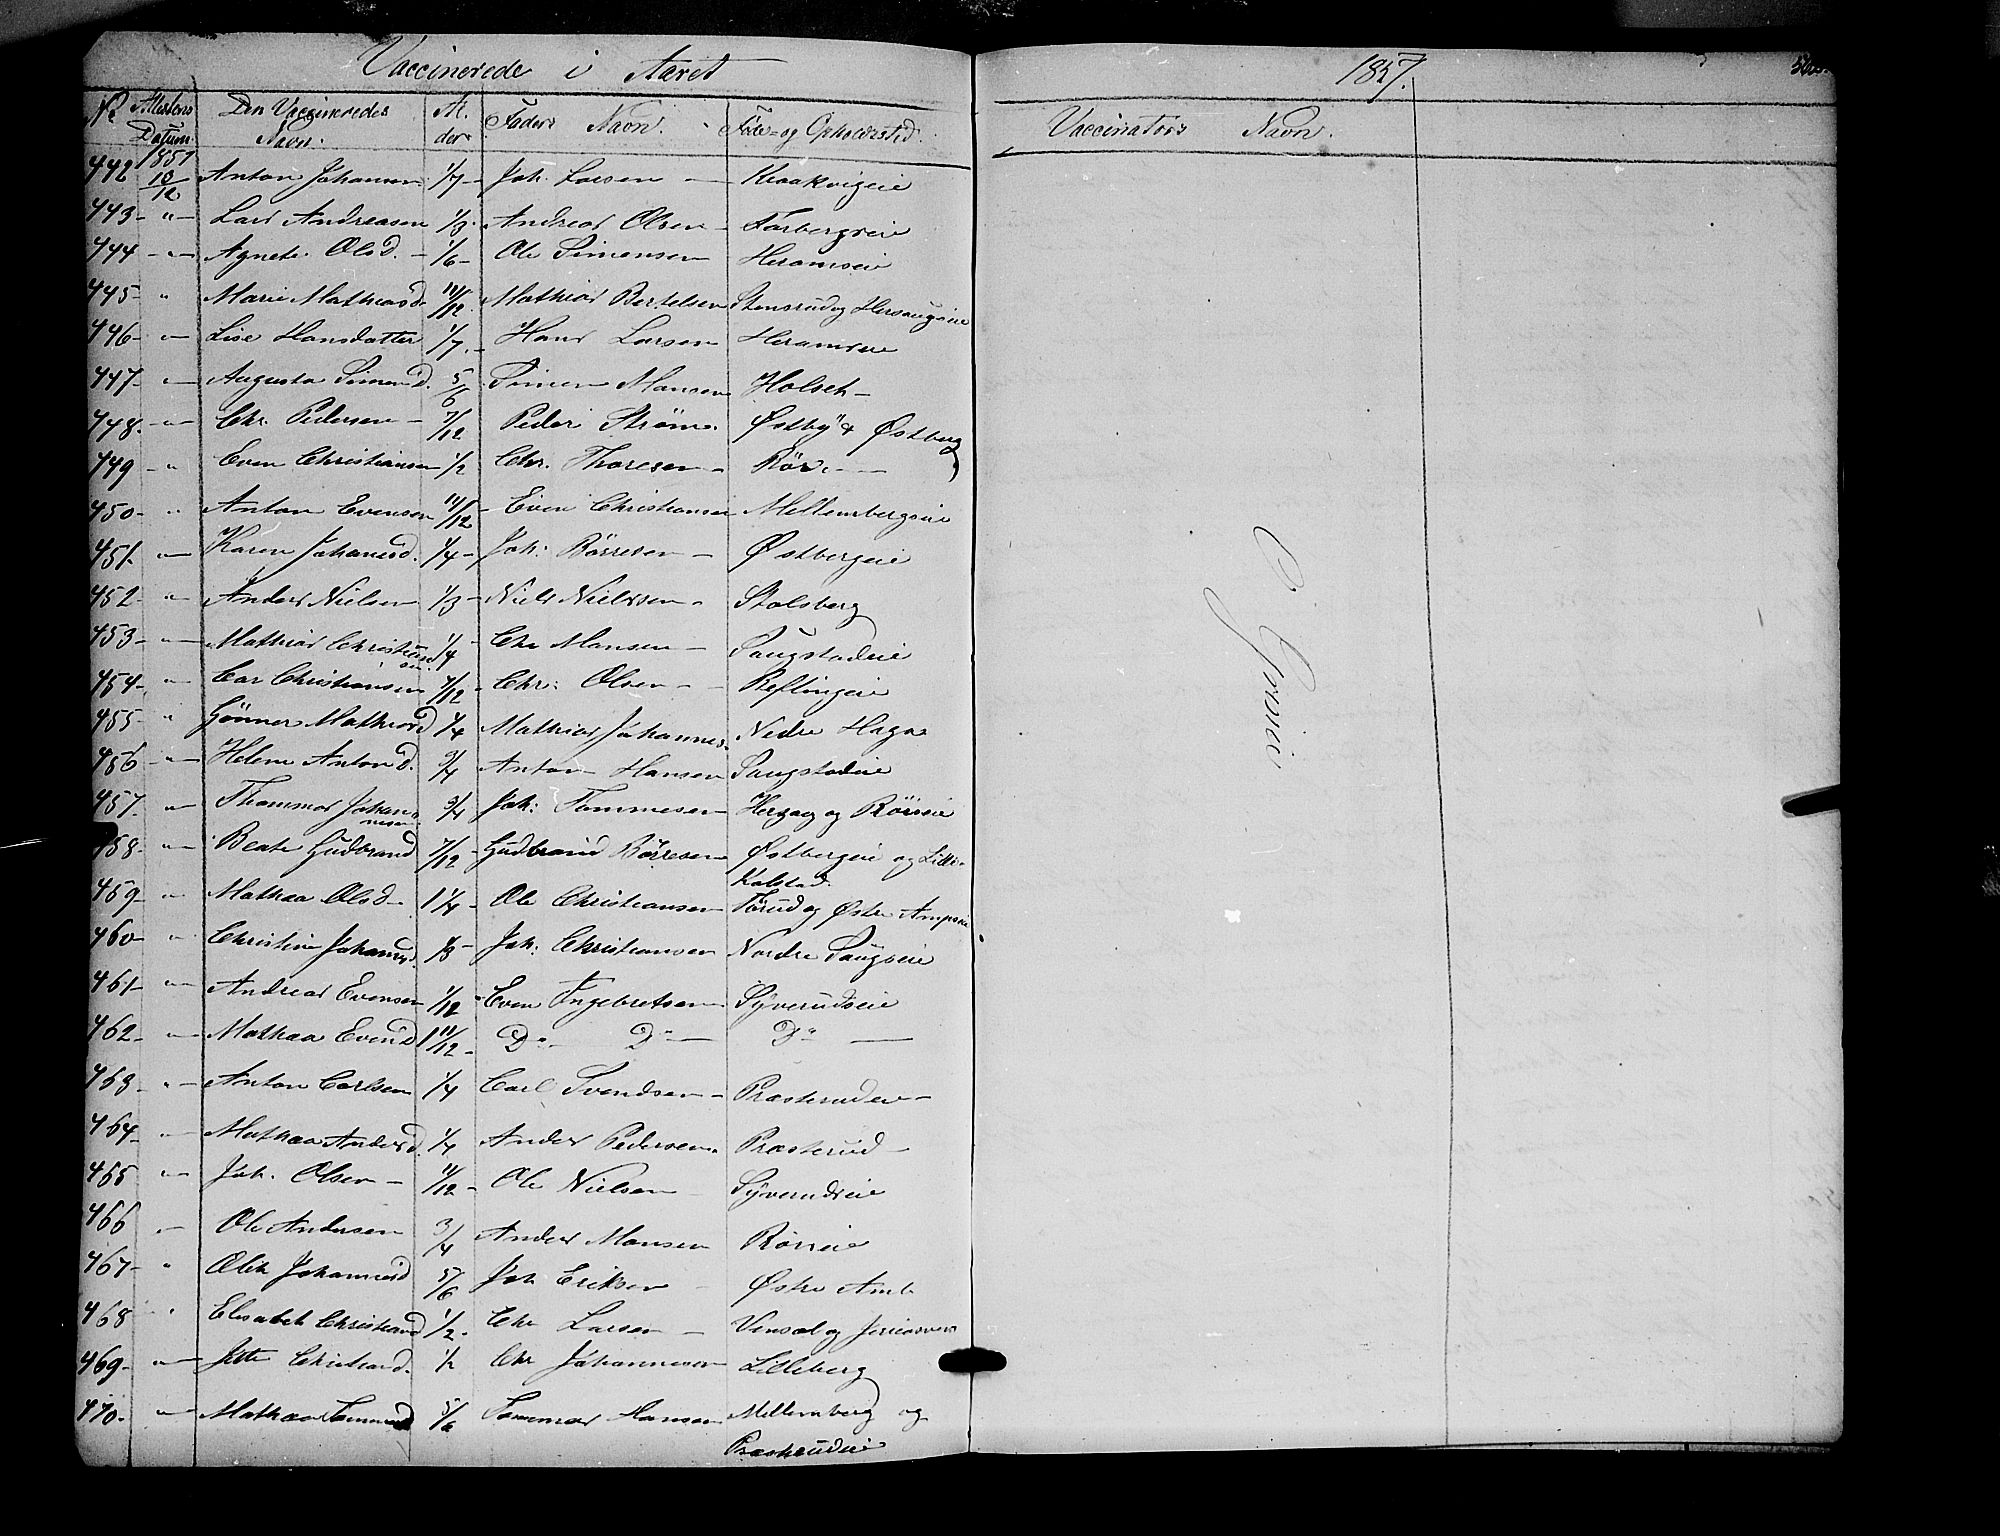 Vaccinerede i Aaret 1857.
No Attestens Datum. Den Vaccineredes Navn. Alder Faders Navn. Føde- og Opholdssted. Vaccinators Navn.
442 1857 10/12 Anton Johansen 1/7 - Joh. Larsen - Kraakvigeie
443 - " - Lars Andreasen 1/3 - Andreas Olsen - Farbergseie
444 - " - Agnete Olsd. - 1/6 - Ole Simensen Heramseie
445 - " Marie Mathiasd. 11/12. Mathias Bertelsen Stensrud og Hersaugseie
446 - " - Lise Hansdatter 1/7. - Hans Larsen Heramseie
447 - " Augusta Simensd. 5/6 Simen Hansen Holseh -
448. - " - Chr. Pedersen - 7/12 Peder Strøm. Østby & Østberg
449 - " Even Christiansen 1/2 Chr. Thoresen - Rør - -
450 - " Anton Evensen 11/12 - Even Christiansen Mellemberrgseie
451 - " - Karen Johannesd. 1/4 - Joh: Børresen - Østbergeie
452 - " Anders Nielsen 1/3 - Niels Nielssen - Stalsberg
453 - " - Mathias Christiansen 1/4 - Chr Hansen - Saugstadeie
454 - " Car Christiansen 7/12 - Chr: Olsen - - Reflingeie
455 - " Gønner Mathiasd 1/4 Mathias Johannes. Nedre Hage
456 - " - Helene Antond. 3/4 Anton Hansen Saugstadeie
457. " Thommas Johannesen 3/4 Joh: Tommesen Herzag og Rørseie
458 - " Beate Gudbrand 7/12 - Gudbrand Børresen Østbergeie og Lille-
Kalstad.
459 - " - Mathea Olsd - 1 1/4 - Ole Christiansen Tørud og Østre Ampseie
460 - " Christine Johannesd. 1/3 - Joh: Christiansen Nordre Saugseie
461 - " Andreas Evensen 1/12 - Even Ingebretsen Syverudseie
462 - " Mathea Evensd 1 11/12 - Do Do - Do -
463 - " - Anton Carlsen 1/4 Carl Svendsen - Præsterudeie -
464 - " Mathea Andersd. 1/4 Anders Pedersen. Præsterud -
465 " Joh. Olsen - 11/12 - Ole Nielsen Syverudseie
466 - Ole Andersen 3/4 Anders Hansen Rørseie
467 - " Oleh Johannesd 5/6 Joh Eriksen - Østre Amb
468 " Elisabeh Christiand 1/2. Chr Larsen -
469 - " - Jette Christiand. 1/2 Chr Johannesen Lilleberg
470. - " - Mathea Tommesd 5/6 Tommas Hansen Mellemberg og
Præsterudeie